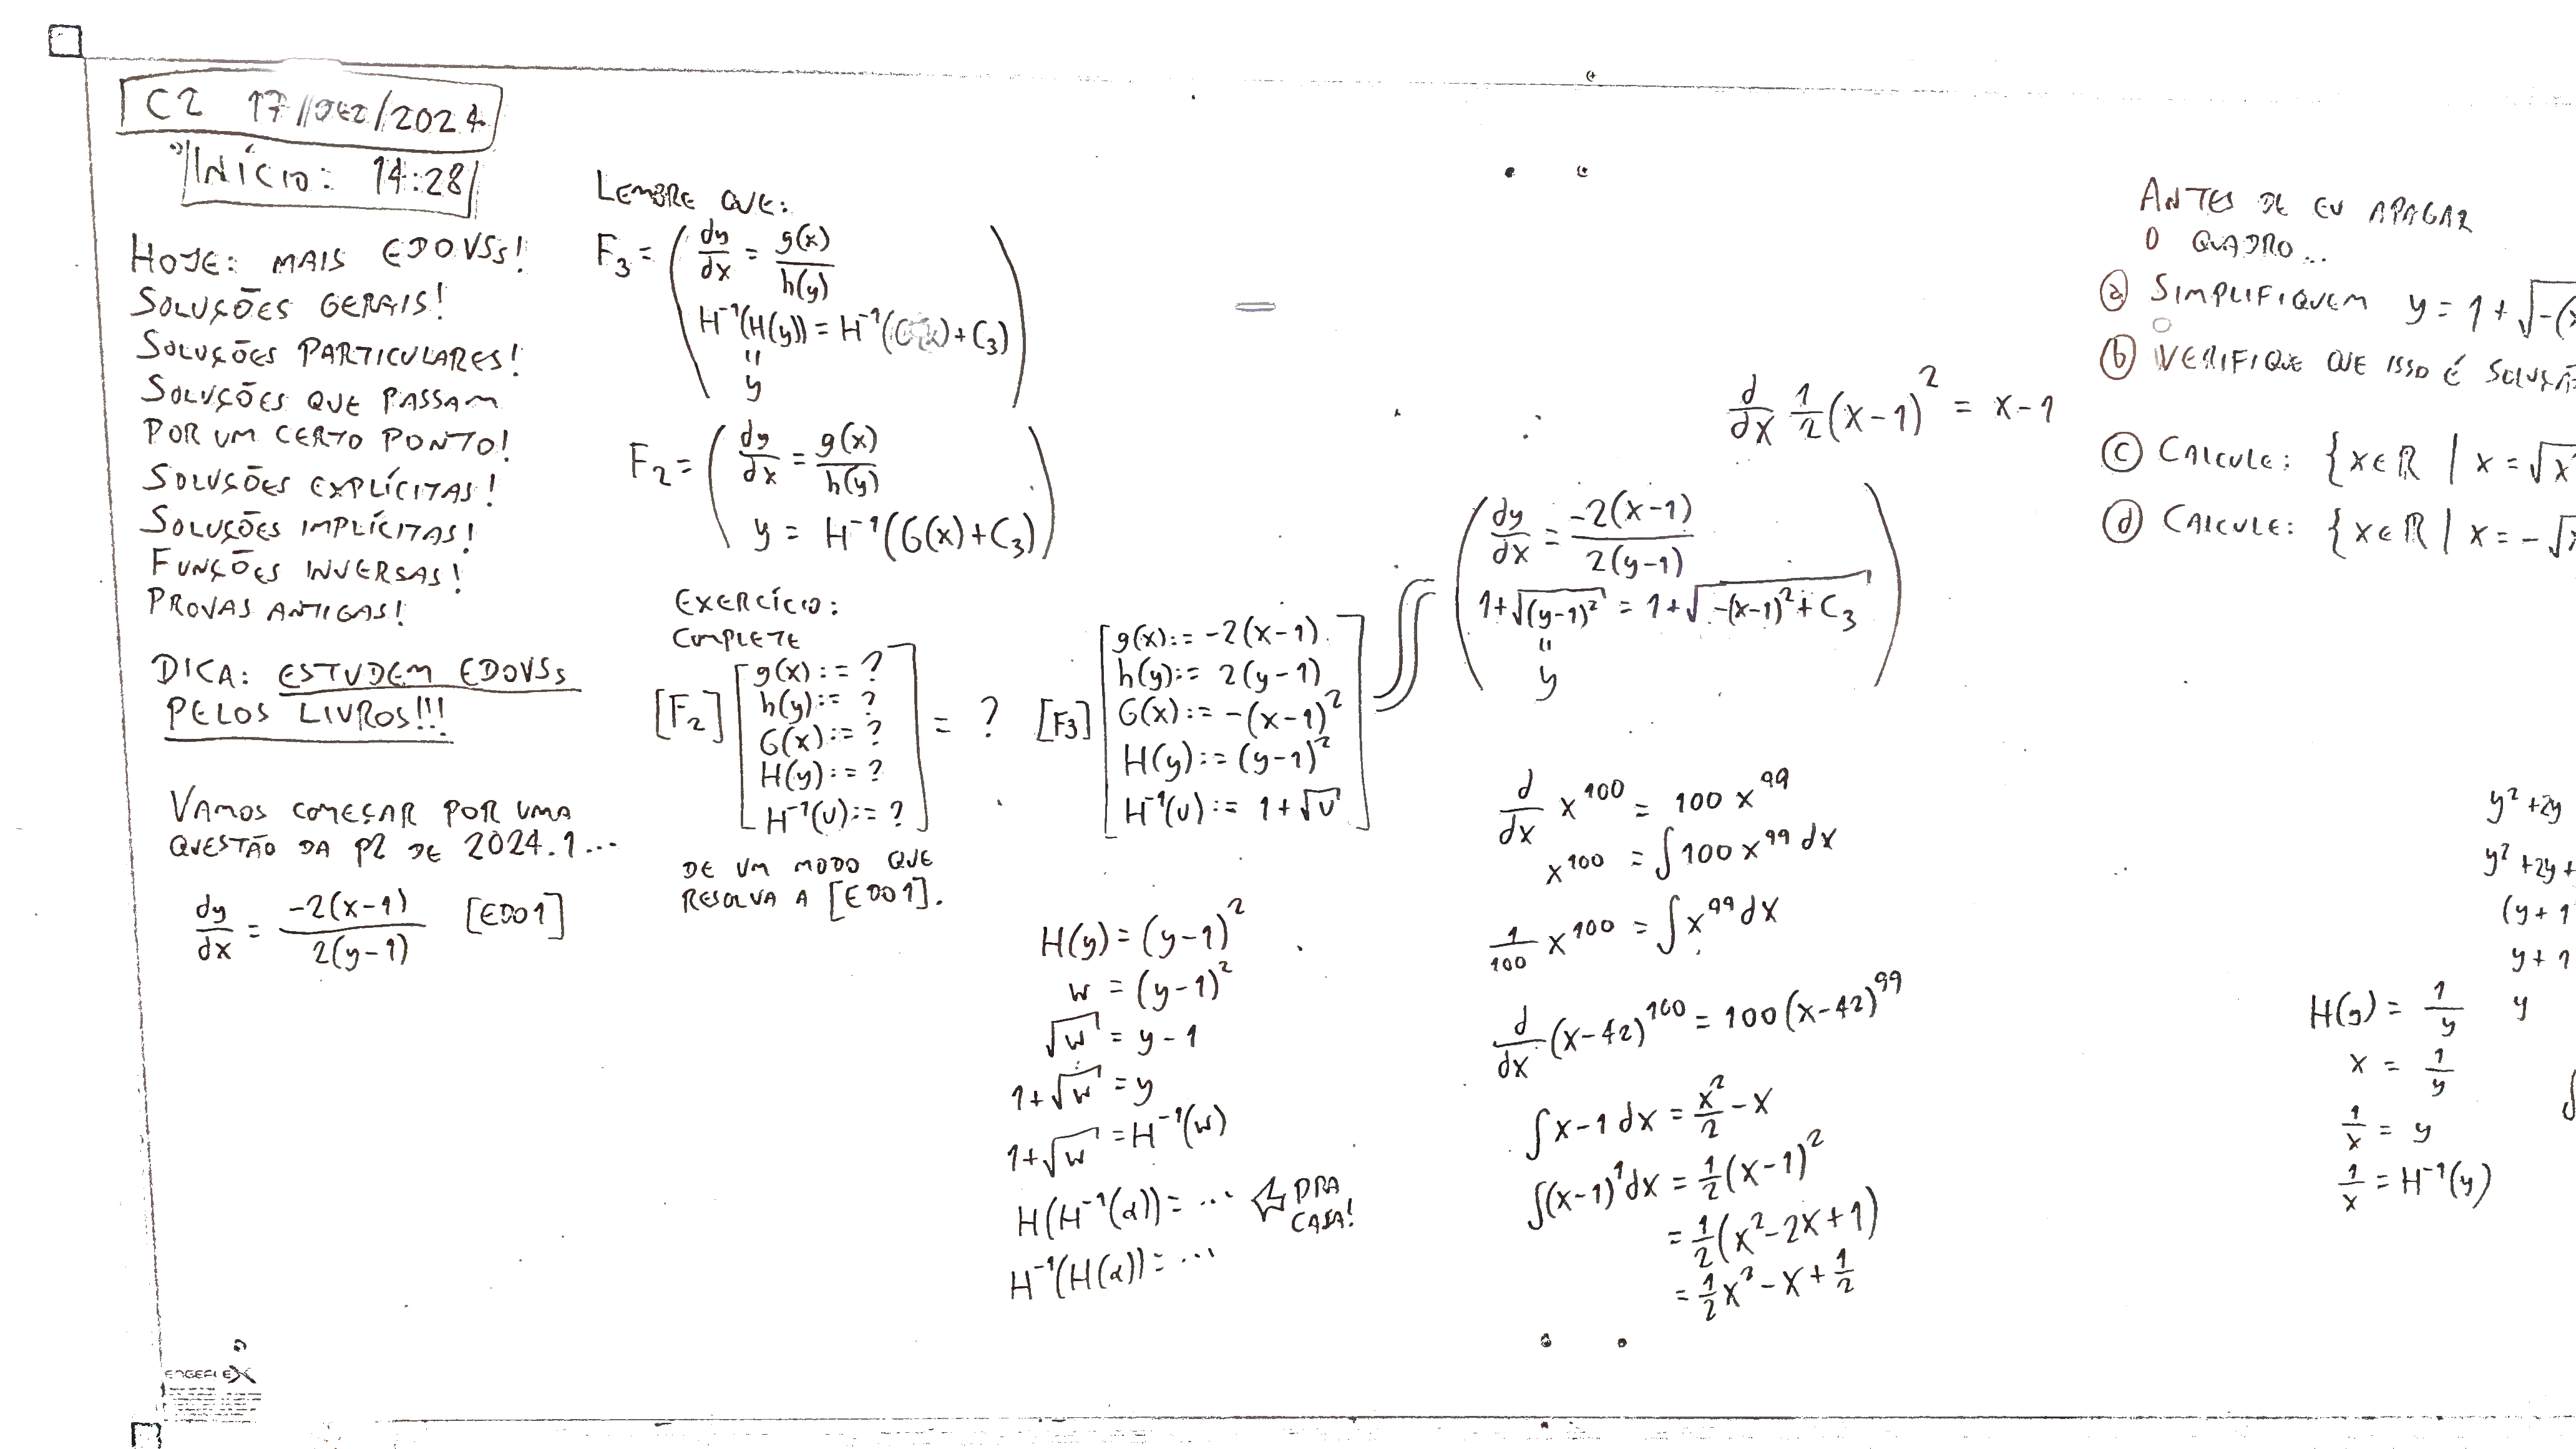 C2 17/DEZ/2024
INÍCIO: 14:28
HOJE: MAIS EDOVSs!
SOLUÇÕES GERAIS!
SOLUÇÕES PARTICULARES!
SOLUÇÕES QUE PASSAM
POR UM CERTO PONTO!
SOLUÇÕES EXPLÍCITAS!
SOLUÇÕES IMPLÍCITAS!
FUNÇÕES INVERSAS!
PROVAS ANTIGAS!
DICA: ESTUDEM EDOVSs
PELOS LIVROS!!!
VAMOS COMEÇAR POR UMA
QUESTÃO DA P2 DE 2024.1...
dy/dx = -2(x-1)/2(y-1) [EDO1]
LEMBRE QUE:
F₃ = ( dy/dx = g(x)/h(y)
H⁻¹(H(y)) = H⁻¹(G(x)+C₃)
"
y )
F₂ = ( dy/dx = g(x)/h(y)
y = H⁻¹(G(x)+C₃) )
EXERCÍCIO:
COMPLETE
[F₂] [ g(x) := ?
h(y) := ?
G(x) := ?
H(y) := ?
H⁻¹(u) := ? ] = ?
DE UM MODO QUE
RESOLVA A [EDO1].
[F3] [ g(x) := -2(x-1)
h(y) := 2(y-1)
G(x) := -(x-1)²
H(y) := (y-1)²
H⁻¹(u) := 1+√u ]
H(y) = (y-1)²
w = (y-1)²
√w = y-1
1+√w = y
1+√w = H⁻¹(w)
H(H⁻¹(α)) = ... ⇦ PRA CASA!
H⁻¹(H(α)) = ...
d/dx 1/2(x-1)² = x-1
( dy/dx = -2(x-1)/2(y-1)
1+√(y-1)² = 1+√-(x-1)²+C₃
"
y )
d/dx x¹⁰⁰ = 100 x⁹⁹
x¹⁰⁰ = ∫100 x⁹⁹ dx
1/100 x¹⁰⁰ = ∫x⁹⁹ dx
d/dx (x-42)¹⁰⁰ = 100(x-42)⁹⁹
∫x-1 dx = x²/2 - x
∫(x-1)¹dx = 1/2(x-1)²
= 1/2(x²-2x+1)
= 1/2x²-x+1/2
ANTES DE EU APAGAR
O QUADRO...
ⓐ SIMPLIFIQUEM y = 1+√-(x
ⓑ VERIFIQUE QUE ISSO É SOLUÇÃ
ⓒ CALCULE: {x∈ℝ | x = √x
ⓓ CALCULE: {x∈ℝ | x = -√x
y²+2y
y²+2y+
(y+1
y+1
y
H(y) = 1/y
x = 1/y
1/x = y
1/x = H⁻¹(y)
∫